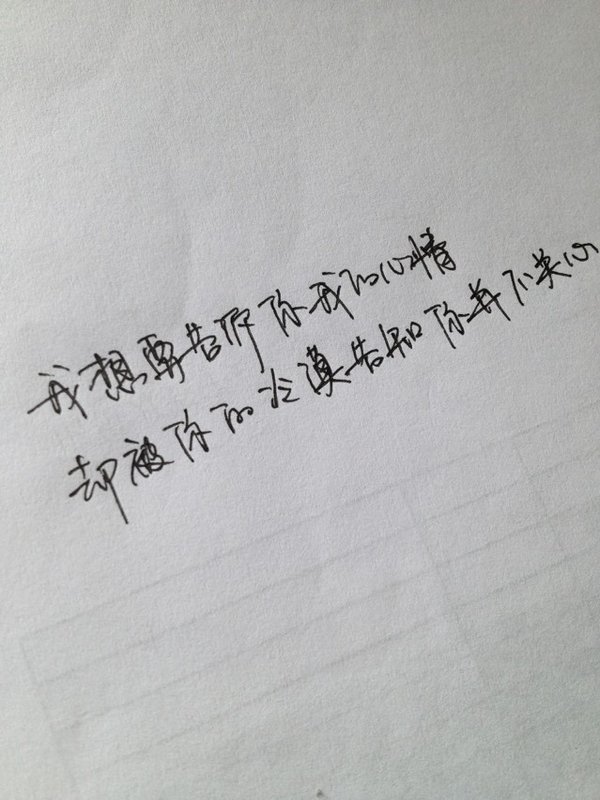 我想要告诉你我的心情
却被你的冷漠告知你并不关心